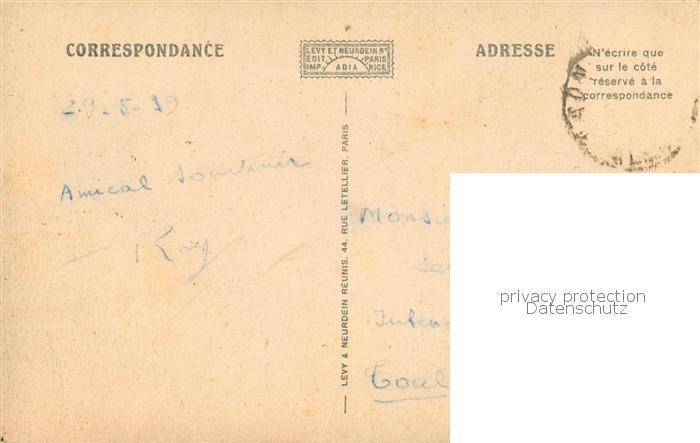 CORRESPONDANCE
LEVY ET NEURDEIN Rs
EDIT. PARIS
IMP. ADIA NICE
ADRESSE
N'écrire que
sur le côté
réservé à la
correspondance
29-5-39
Amical Souvenir
LÉVY & NEURDEIN RÉUNIS, 44, RUE LETELLIER, PARIS
Monsie
Toul
privacy protection
Datenschutz